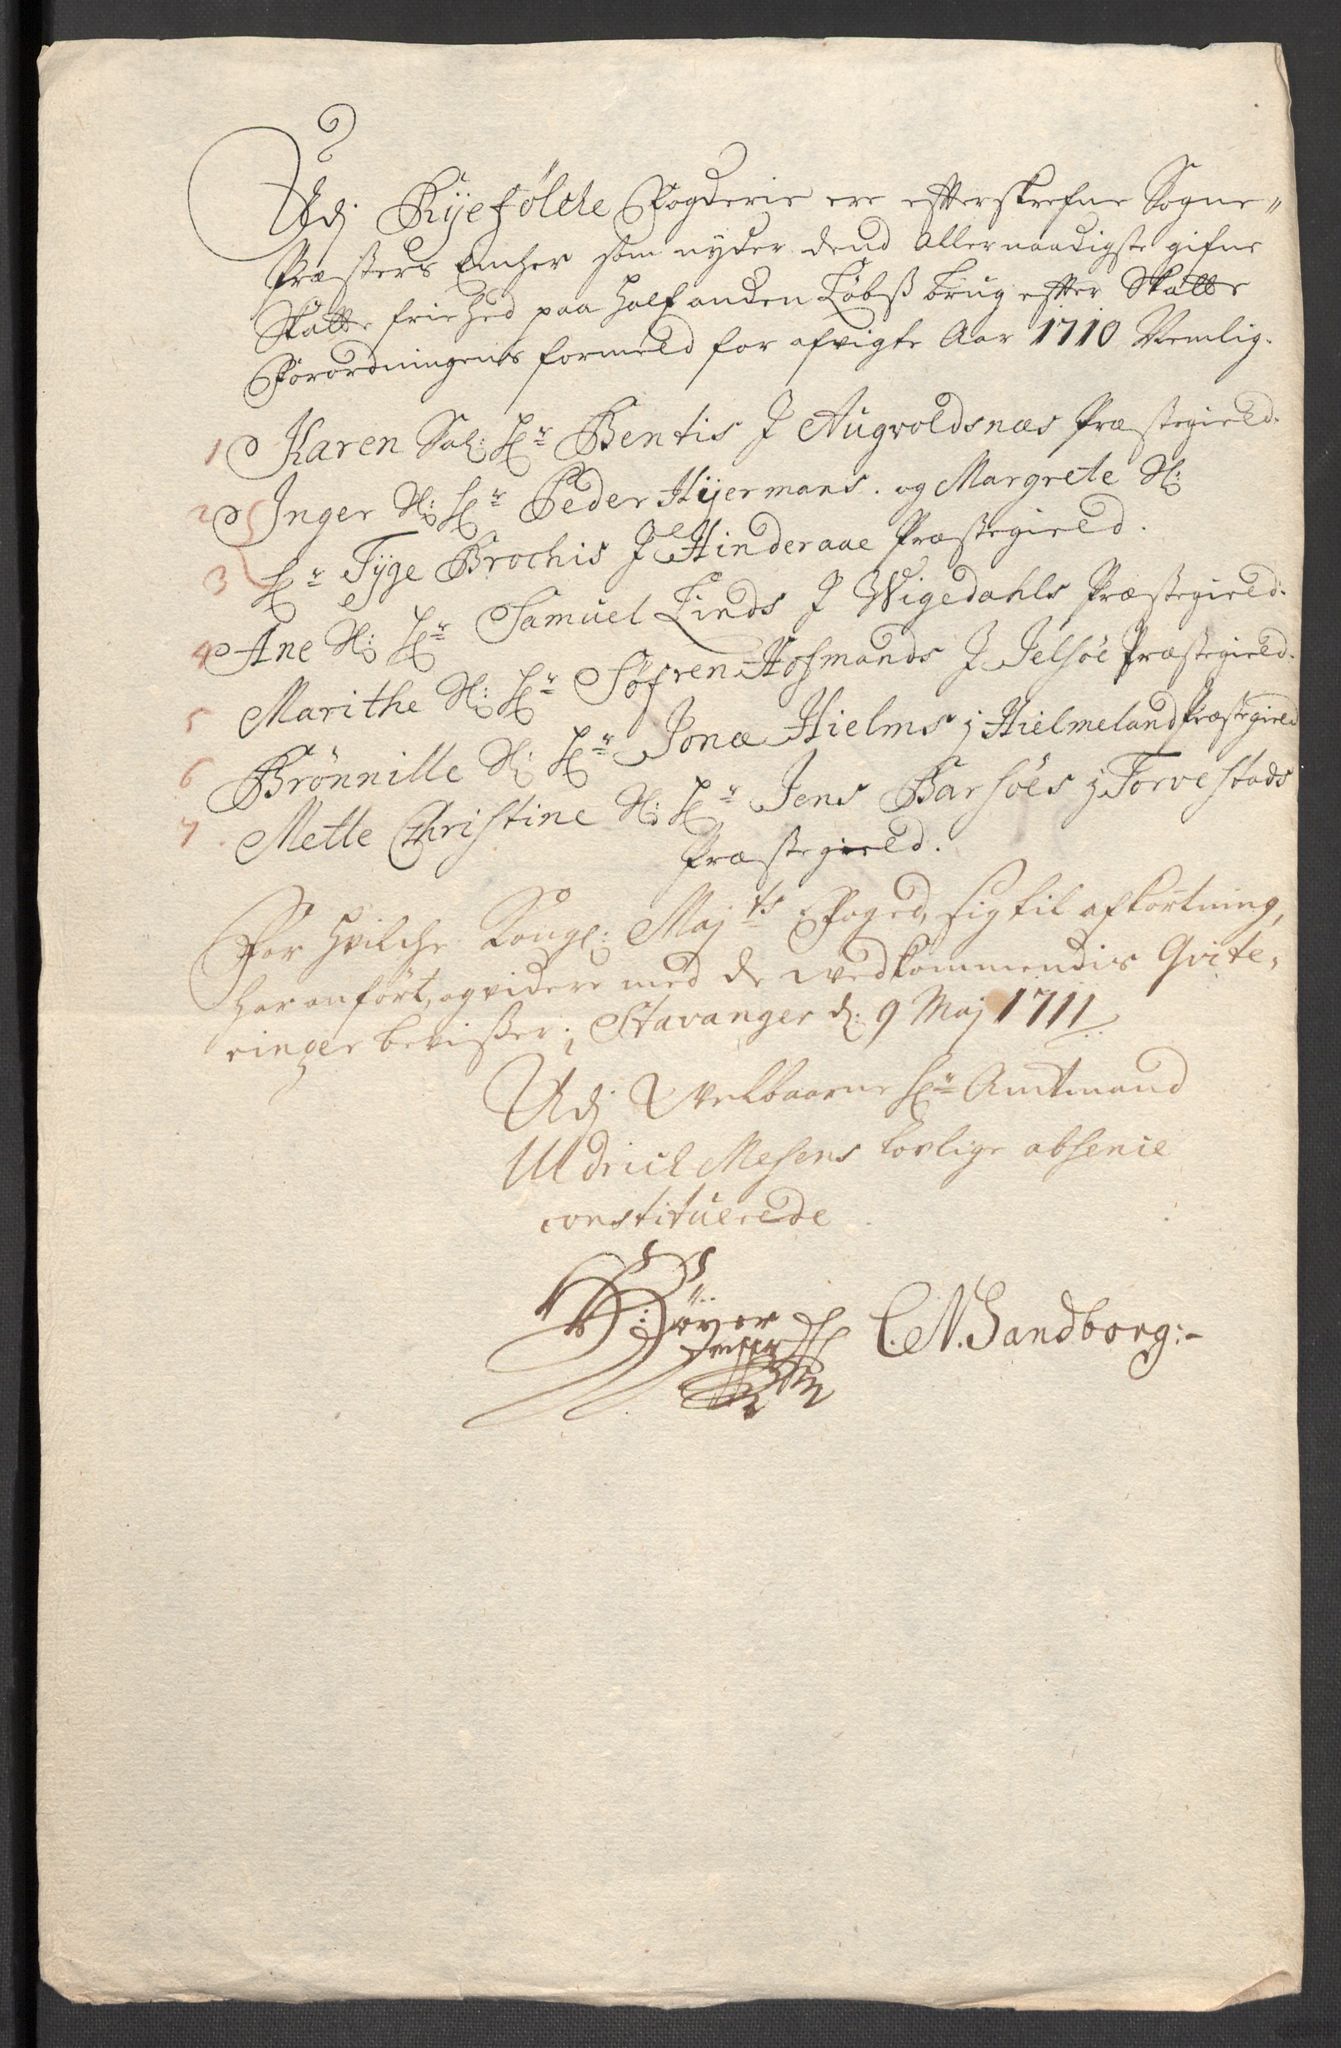 Udj Ryefölcke Fogderie ere effterskrefne Sogne=
Præsters Encher som nyder dend Allernaadigste gifne
Skatte friehed paa Half anden Löbsß brug efter Skatte
Forordningens formeld for afvigte Aar 1710 Nemlig.
1 Karen Sal: Hr Bentis J Augvoldsnæs Præstegield.
2 Inger Sl: Hr Peder Hijermans. og Margrete Sl:
3 Hr Tyge Brochis J Hinderaae Præstegield.
4 Ane Sl: Hr Samuel Linds J Wigedahls Præstegield.
5 Marithe Sl: Hr Söfren Hofmands J Jelsöe Præstegield.
6 Brönnille Sl: Hr Jonæ Hielms j Hielmeland Præstegield
7 Mette Christine Sl: Hr Jens Barsöes j Torvestads
Præstegield.
For hvilche Kongl: Majts Foged, sig til afkortning,
har anfört, og videre med de vedkommendis Qvite-
ringer bevißer; Stavanger d: 9 Maj 1711
Udj Velbaarne Hr Amtmand
Uldrich Mesens lovlige absence
constituerede
Böyer
C. N. Sandborg:-